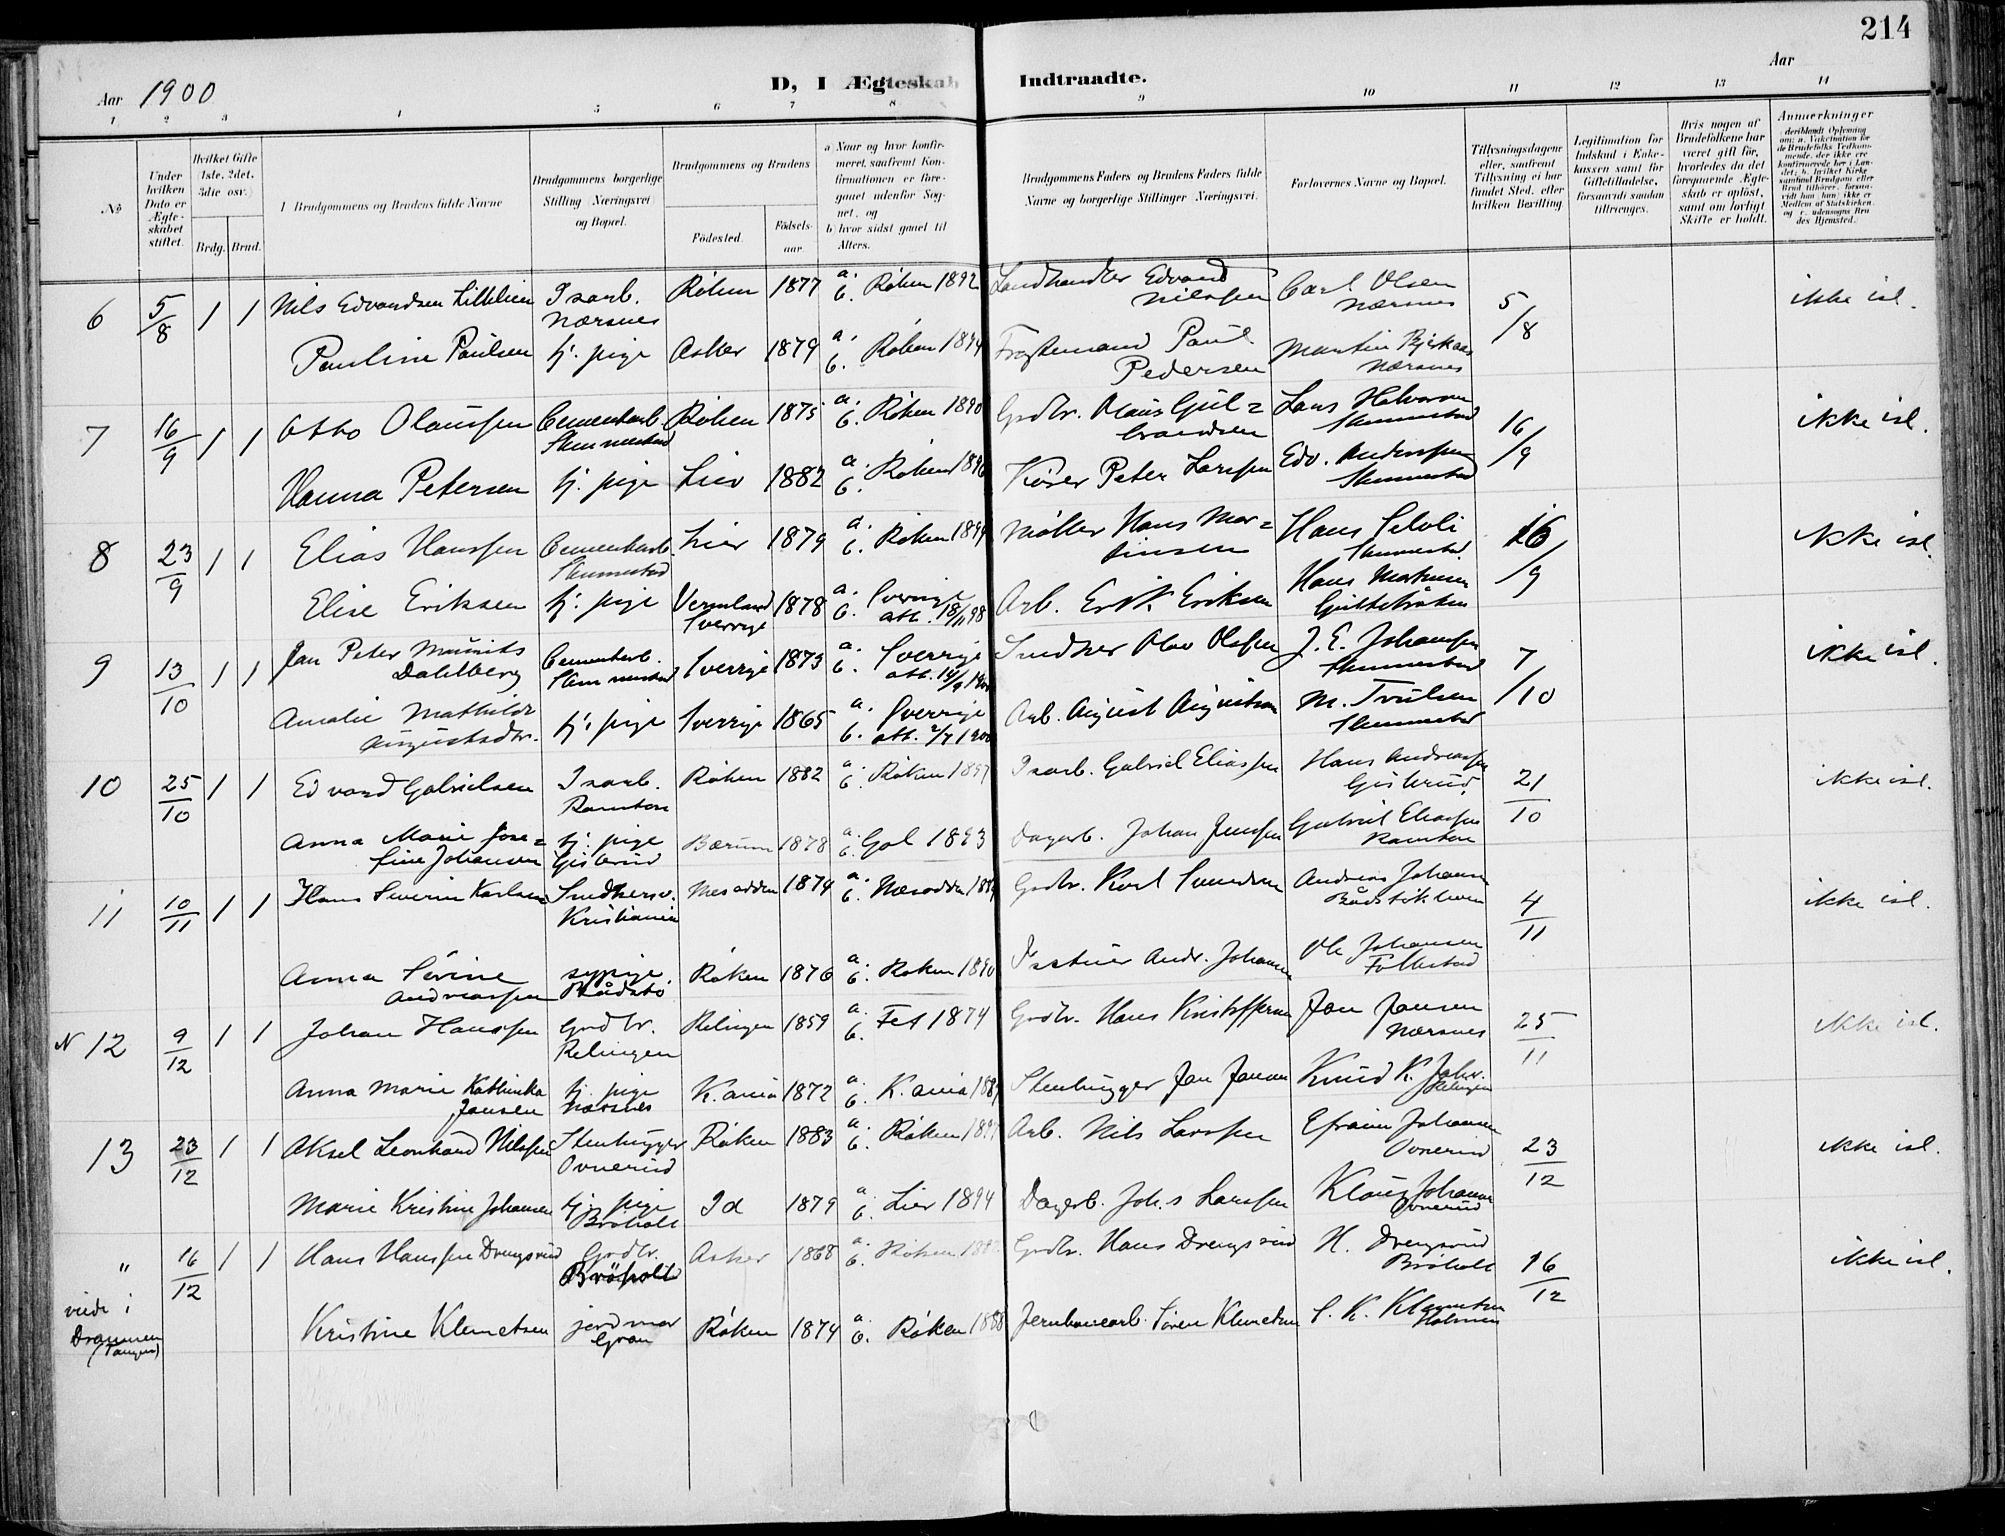 214
Aar 1900
D, I Ægteskab Indtraadte.
Aar
1 2 3 4 5 6 7 8 9 10 11 12 13 14
No
Under hvilken Dato er Ægteskabet stiftet.
Hvilket Gifte (1ste, 2det, 3die osv.)
Brdg. Brud.
Brudgommens og Brudens fulde Navne
Brudgommens borgerlige Stilling Næringsvei og Bopæl.
Brudgommens og Brudens
Fødested. Fødsels-aar.
a Naar og hvor konfirmeret, saafremt Konfirmationen er foregaaet udenfor Sognet, og
b hvor sidst gaaet til Alters.
Brudgommens Faders og Brudens Faders fulde Navne og borgerlige Stillinger Næringsvei.
Forlovernes Navne og Bopæl.
Tillysningsdagene eller, saafremt Tillysning ei har fundet Sted, efter hvilken Bevilling.
Legitimation for Indskud i Enkekassen samt for Giftetilladelse, forsaavidt saadan tiltrænges.
Hvis nogen af Brudefolkene har været gift før, hvorledes da det foregaaende Ægteskab er opløst, samt om lovligt Skifte er holdt.
Anmærkninger
6 5/8 1 1 Nils Edvardsen Littlelien Isarb. Nærsnes Røken 1877 a. b. Røken 1892 Landhandler Edvard Nilssen Carl Olsen Nærsnes 5/8 ikke isl.
Pauline Paulsen tj. pige Asker 1879 a. b. Røken 1894 Pedersen Martin Nærsnes
7 16/9 1 1 Otto Olaussen Cementarb. Slemmestad Røken 1875 a. b. Røken 1890 Grdbr. Olaus Gulbrandsen Lars Halvorsen Slemmestad 16/9 ikke isl.
Hanna Petersen tj. pige Lier 1882 a. b. Røken 1896 Peter Larssen Edv. Anderssen Slemmestad
8 23/9 1 1 Elias Hanssen Cementarb. Slemmestad Lier 1879 a. b. Røken 1894 Møller Hans Martinsen Hans Slemmestad 16/9 ikke isl.
Elise Eriksen tj. pige Vermland Sverrige 1878 a. b. Sverrige att. 18/11 98 Arb. Erik Eriksen Hans
9 13/10 1 1 Jan Peter Mauritz Dahlberg Cementarb. Slemmestad Sverrige 1873 a. b. Sverrige att. Snedker Olav Olssen J. E. Johanssen Slemmestad 7/10 ikke isl.
Amalie Mathilde Augustsdtr. tj. pige Sverrige 1865 a. b. Sverrige att. 2/7 1900 Arb. August M. Trulsen Slemmestad
10 25/10 1 1 Edvard Gabrielsen Isarb. Ramton Røken 1882 a. b. Røken 1897 Isarb. Gabriel Eliassen Hans Andreassen Gisterud 21/10 ikke isl.
Anna Marie Josefine Johansen tj. pige Gisterud Bærum 1878 a. b. Gol 1893 Dagarb. Johan Jenssen Gabriel Eliassen Ramton
11 10/11 1 1 Hans Severin Karlsen Snedkersv. Kristiania Nesodden 1874 a. b. Næsodden Grdbr. Karl Svendsen Andreas Johansen 4/11 ikke isl.
Anna Sørine Andreassen sypige Bådstø Røken 1876 a. b. Røken 1890 Andr. Johansen Ole Johansen Follestad
N 12 9/12 1 1 Johan Hanssen Grdbr. Relingen Relingen 1859 a. b. Fet 1874 Grdbr. Hans Kristoffersen Jan Jansen Nærsnes 25/11 ikke isl.
Anna Marie Kathinka Jansen tj. pige Nærsnes K.ania 1872 a. b. K.ania Stenhugger Jan Jansen Knud K. Johs. Relingen
13 23/12 1 1 Aksel Leonhard Nilssen Stenhugger Ovnerud Røken 1883 a. b. Røken 1897 Arb. Nils Larssen Efraim Johansen Ovnerud 23/12 ikke isl.
Marie Kristine Johansen tj. pige Brøholt Id 1879 a. b. Lier 1894 Dagarb. Joh.s Larssen Klaus Johansen Ovnerud
" 16/12 1 1 Hans Hanssen Drengsrud Grdbr. Brøholt Asker 1868 a. b. Røken Grdbr. Hans Drengsrud H. Drengsrud Brøholt 16/12 ikke isl.
viede i Drammen (Tangen)
Kristine Klemetsen jordmor Gran Røken 1874 a. b. Røken 1888 Jernbanearb. Søren Klemetsen S. K. Klemetsen Holmen